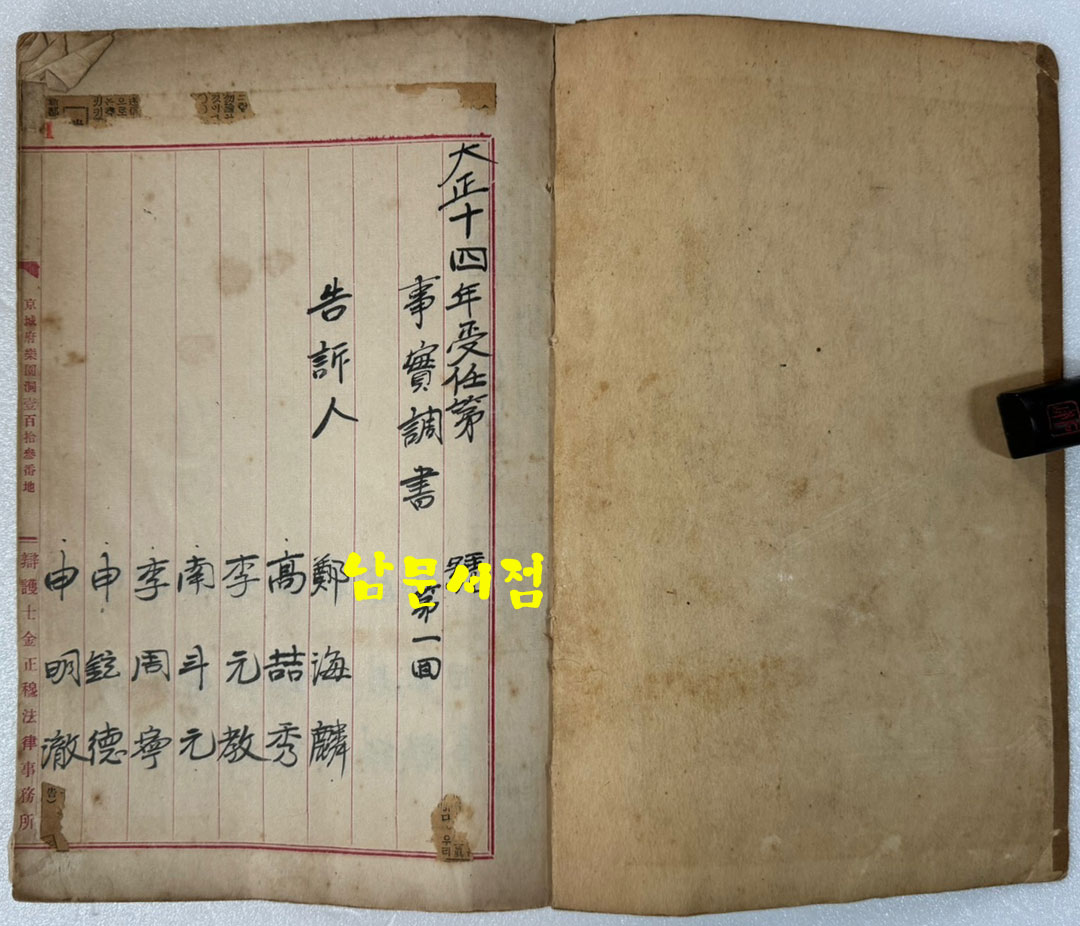 大正十四年受任第 號
事實調書 第一回
告訴人 鄭海麟
高喆秀
李元教
南斗元
李周寧
申鉉德
申明澈
京城府樂園洞壹百拾叁番地
辯護士金正穆法律事務所
남문서점